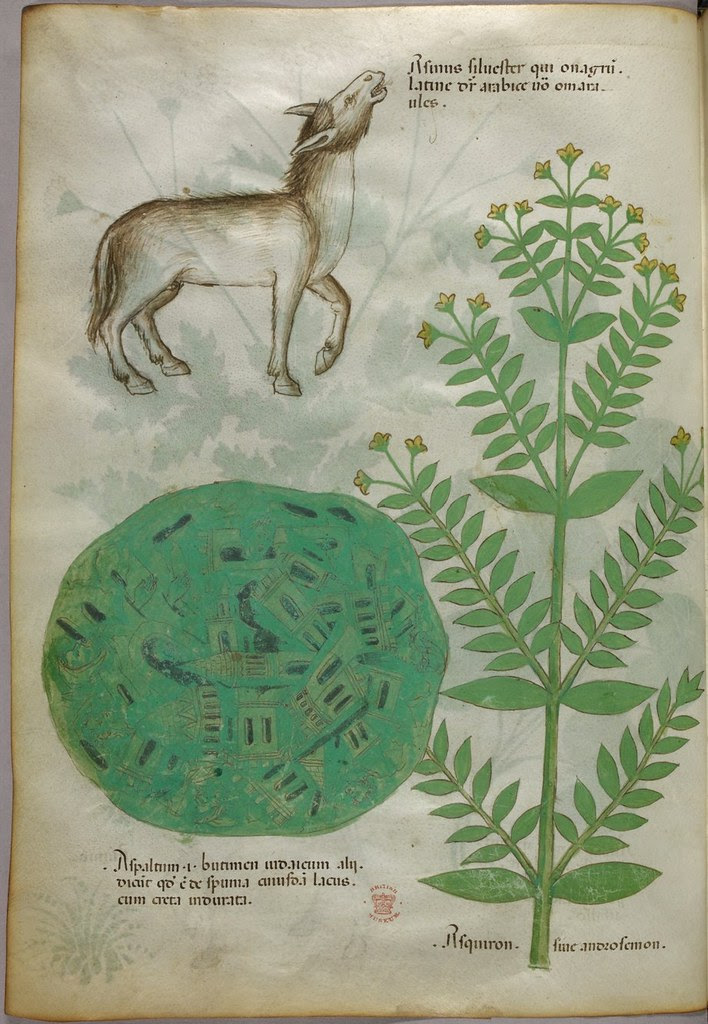 Asinus siluester qui onagrū.
latine dr̄ arabice uō omari
ules.
. Aspaltum .i. butimen iudaicum alii.
dicūt qd' ē de spuma cuiusdā lacus.
cum creta indurata.
BRITISH
MUSEUM
. Asquiron. siue androsemon.